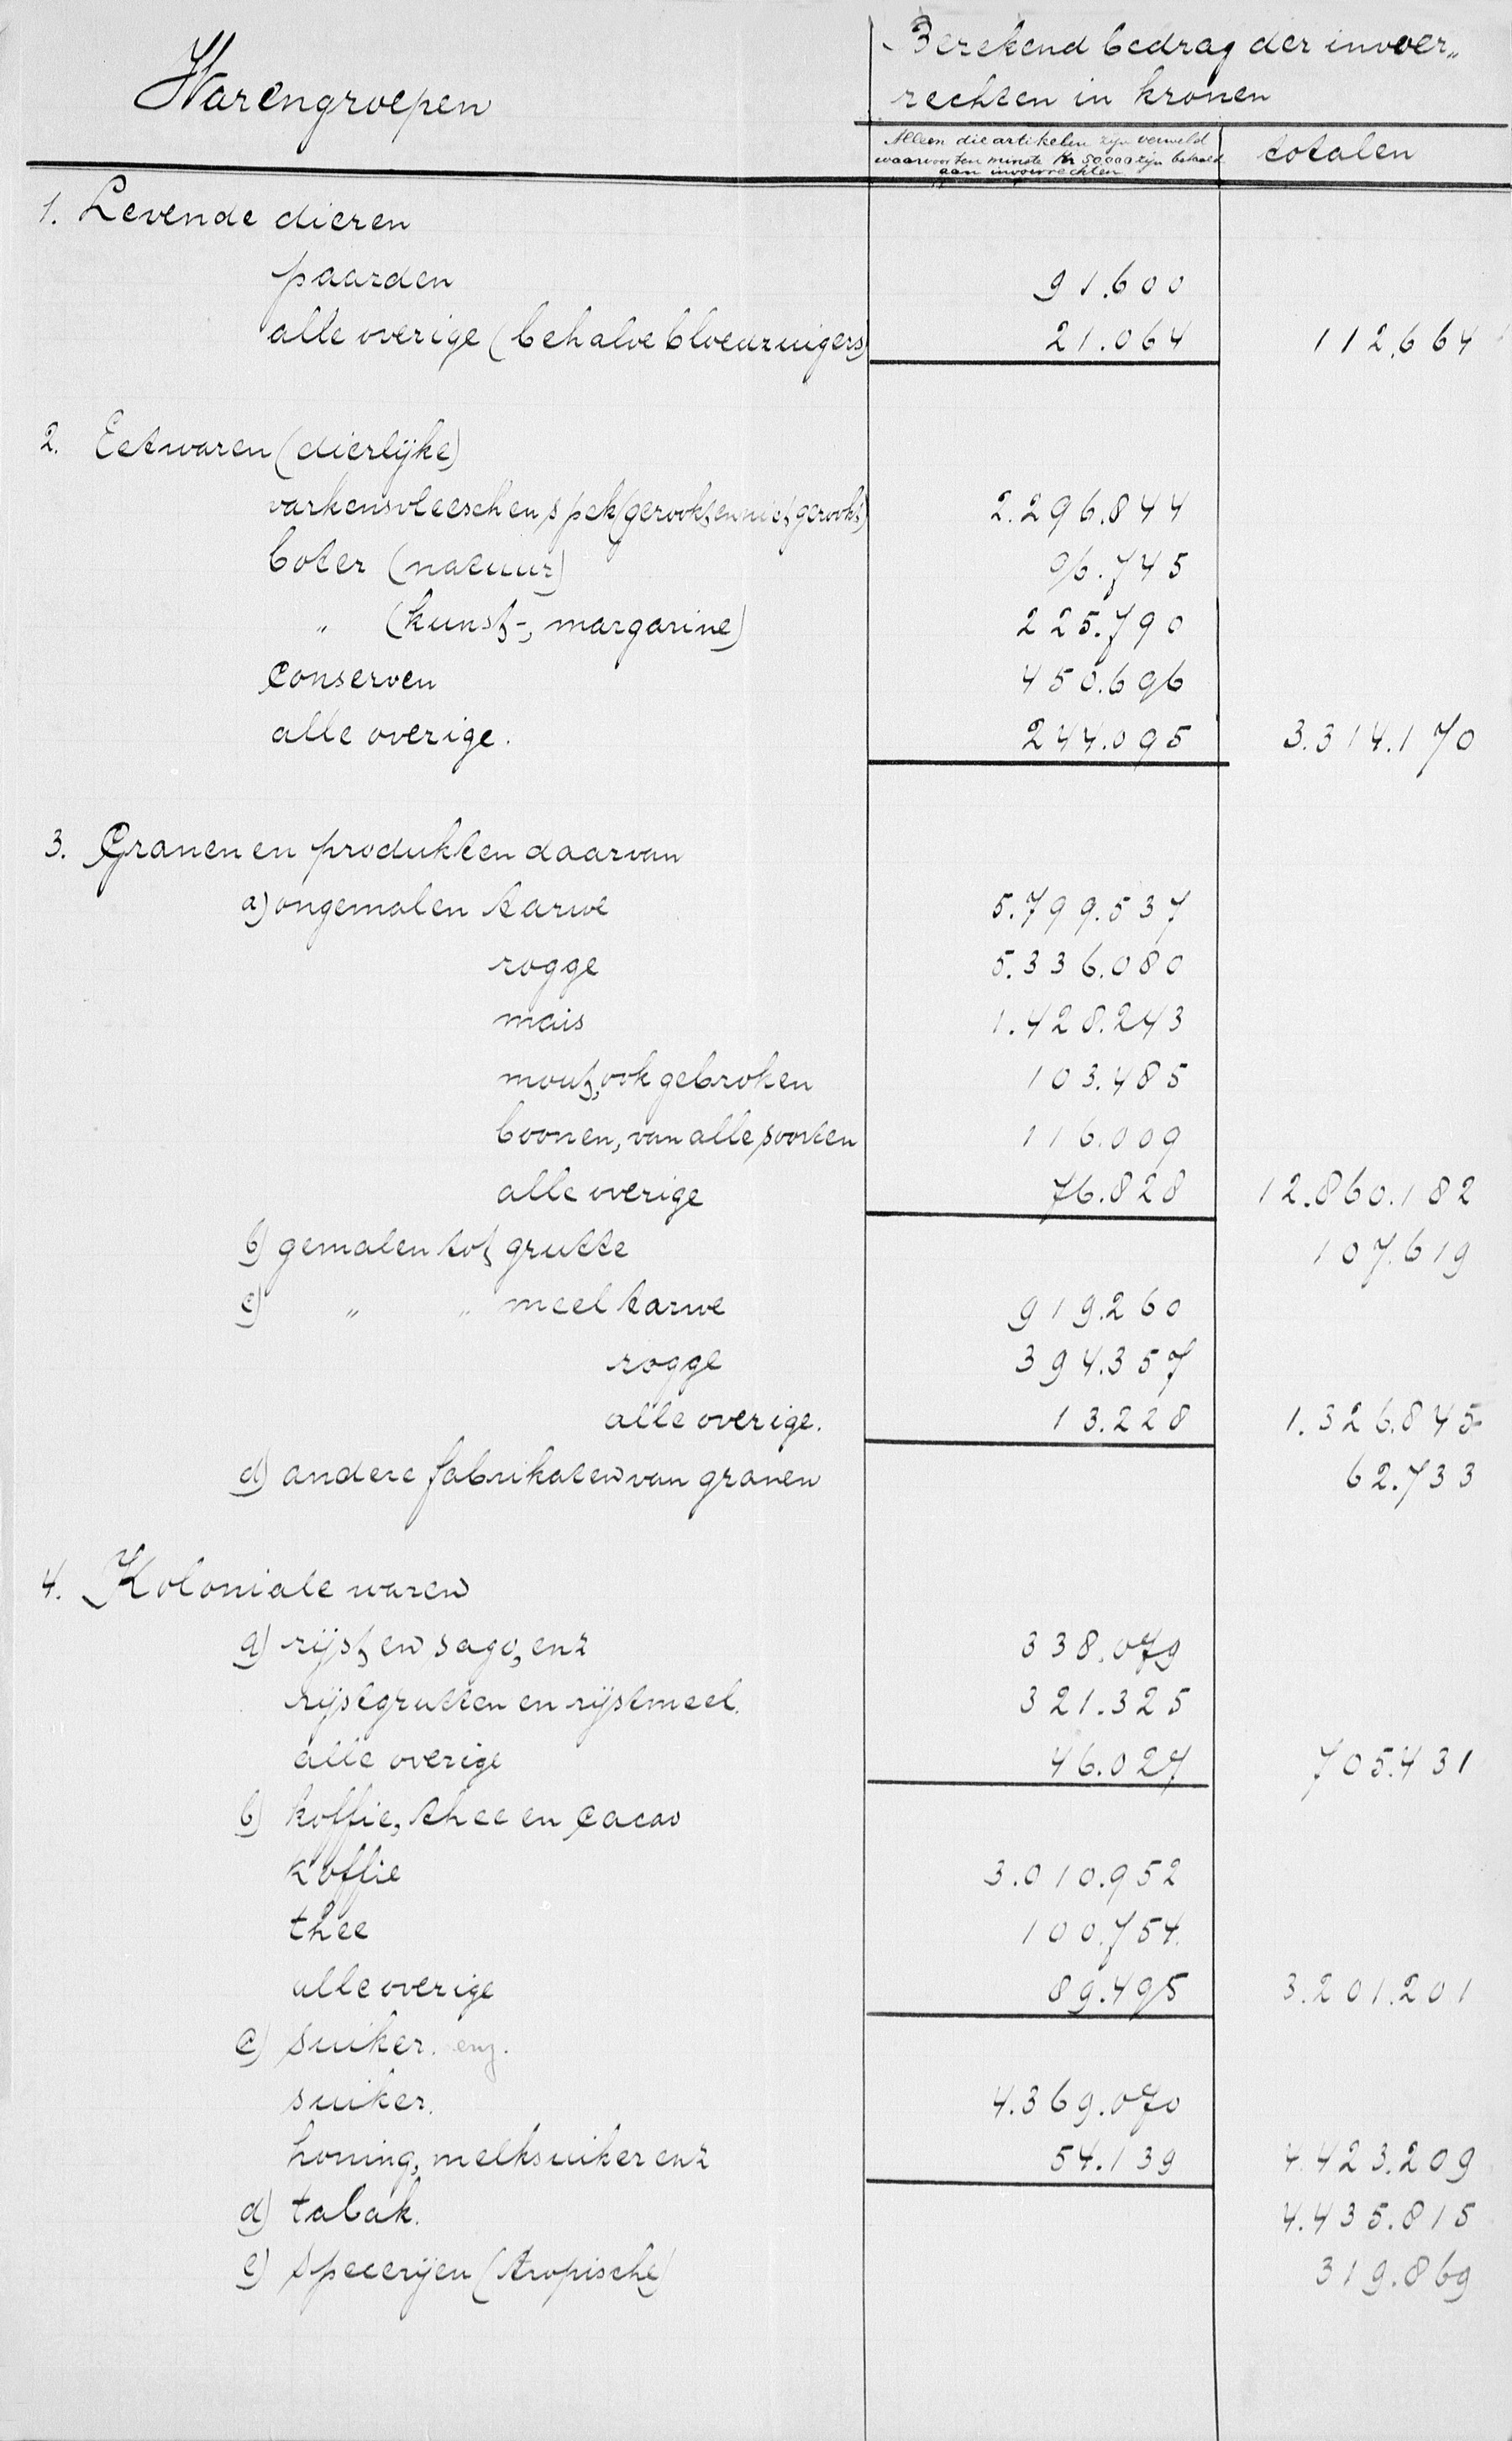 Warengroepen
Berekend bedrag der invoer„
rechten in kronen
Alleen die artikelen zijn vermeld
waarvoor ten minste Kr 50.000 zijn betaald
aan invoerrechten
totalen
1. Levende dieren
paarden 91.600
alle overige (behalve bloedzuigers) 21.064 112.664
2. Eetwaren (dierlijke)
varkensvleesch en spek (gerookt en niet gerookt) 2.296.844
boter (natuur) 96.745
„ (kunst-, margarine) 225.790
Conserven 450.696
alle overige. 244.095 3.314.170
3. Granen en produkten daarvan
a) ongemalen tarwe 5.799.537
rogge 5.336.080
mais 1.428.243
mout, ook gebroken 103.485
boonen, van alle soorten 116.009
alle overige 76.828 12.860.182
b) gemalen tot grutte 107.619
c) „ „ meel tarwe 919.260
rogge 394.357
alle overige. 13.228 1.326.845
d) andere fabrikaten van granen 62.733
4. Koloniale waren
a) rijst en sago, enz 338.079
rijstgrutten en rijstmeel. 321.325
alle overige 46.027 705.431
b) koffie, thee en cacao
koffie 3.010.952
thee 100.754.
alle overige 89.495 3.201.201
c) suiker. enz.
suiker. 4.369.070
honing, melksuiker enz 54.139 4.423.209
d) tabak. 4.435.815
e) specerijen (tropische) 319.869